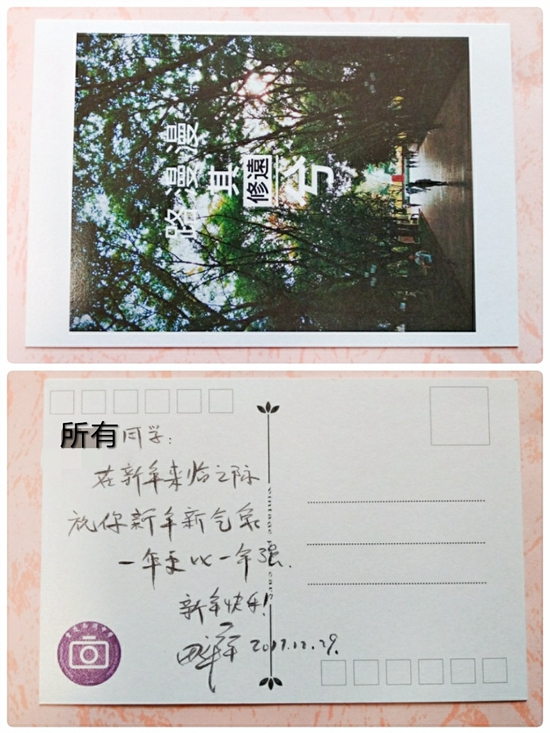 路漫漫
其修遠兮
所有同学:
在新年来临之际
祝你新年新气象
一年更比一年强.
新年快乐!
2017.12.29.